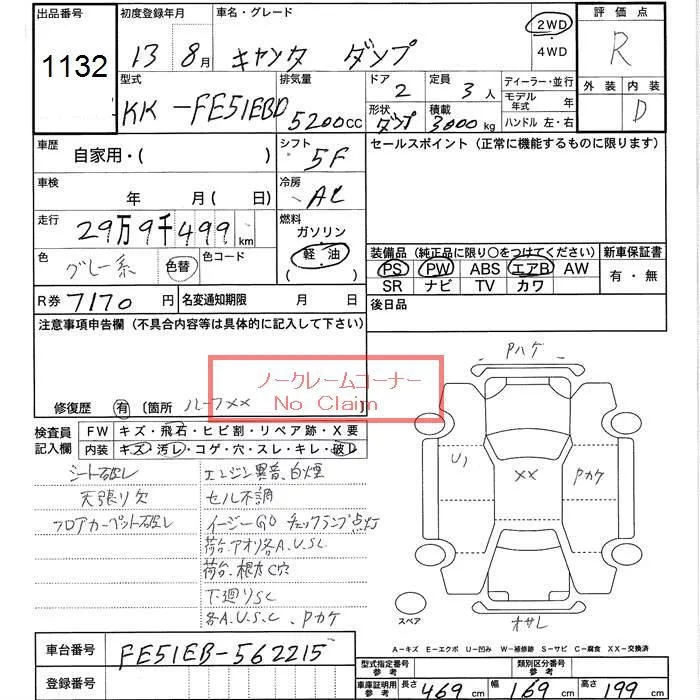 出品番号 初度登録年月 車名・グレード 評価点
1132 13 8月 キャンタ ダンプ 2WD 4WD R
型式 排気量 ドア 定員 ディーラー・並行 外装 内装
KK-FE51EBD 5200cc 2 3人 モデル年式 年 D
形状 ダンプ 積載 3000kg ハンドル 左・右
車歴 自家用・( ) シフト 5F セールスポイント(正常に機能するものに限ります)
車検 年 月(日) 冷房 AC
走行 29万9千499km 燃料 ガソリン 軽油 ( )
色 グレー系 色替 色コード 装備品(純正品に限り○をつけてください) 新車保証書
PS PW ABS エアB AW 有・無
SR ナビ TV カワ
R券 7170円 名変通知期限 月 日 後日品
注意事項申告欄(不具合内容等は具体的に記入して下さい)
ノークレームコーナー
No Claim
修復歴 有 [箇所 ルーフXX ]
検査員記入欄 FW キズ・飛石・ヒビ割・リペア跡・X要
内装 キズ・汚レ・コゲ・穴・スレ・キレ・破レ
シート破レ エンジン異音、白煙
天張り欠 セル不調
フロアカーペット破レ イージーGO チェックランプ点灯
荷台、アオリ各A.U.S.C
荷台、根太C穴
下廻りSC
各A.U.S.C、Pカケ
Pハゲ
U1 XX Pカケ
スペア オサレ
A-キズ E-エクボ U-凹み W-補修跡 S-サビ C-腐食 XX-交換済
車台番号 FE51EB-562215
登録番号
型式指定番号 参考 類別区分番号 参考
車庫証明用 参考 長さ 469cm 幅 169cm 高さ 199cm